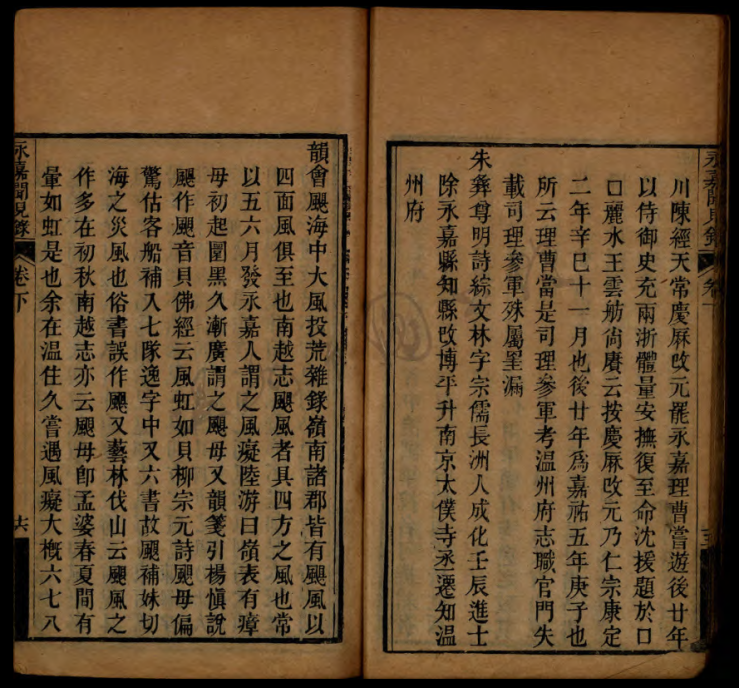 川陳經天常慶厤改元罷永嘉理曹嘗遊後廿年
以侍御史充兩浙體量安撫復至命沈援題於口
口麗水王雲舫尙賡云按慶厤改元乃仁宗康定
二年辛巳十一月也後廿年爲嘉祐五年庚子也
所云理曹當是司理參軍考温州府志職官門失
載司理參軍殊屬罣漏
朱彝尊明詩綜文林字宗儒長洲人成化壬辰進士
除永嘉縣知縣改博平升南京太僕寺丞遷知温
州府
韻會颶海中大風投荒雜錄嶺南諸郡皆有颶風以
四面風俱至也南越志颶風者具四方之風也常
以五六月發永嘉人謂之風癡陸游曰嶺表有瘴
母初起圓黑久漸廣謂之颶母又韻箋引楊愼說
颶作䫻音貝佛經云風虹如貝柳宗元詩颶母偏
驚估客船補入七隊逸字中又六書故䫻補妹切
海之災風也俗書誤作颶又藝林伐山云颶風之
作多在初秋南越志亦云颶母卽孟婆春夏間有
暈如虹是也余在温住久嘗遇風癡大槪六七八
永嘉聞見錄
卷下
六